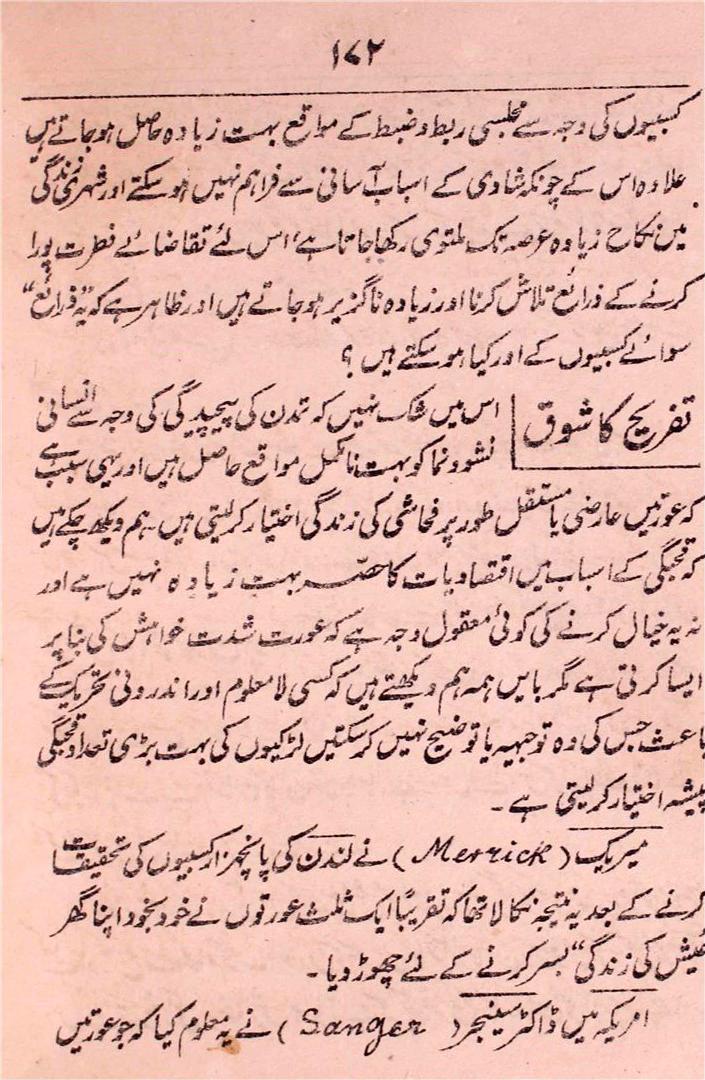 ۱۷۲
کسبیوں کی وجہ سے مجلسی ربط و ضبط کے مواقع بہت زیادہ حاصل ہو جاتے ہیں
علاوہ اس کے چونکہ شادی کے اسباب آسانی سے فراہم نہیں ہو سکتے اور شہری زندگی
میں نکاح زیادہ عرصہ تک ملتوی رکھا جاتا ہے، اس لئے تقاضائے فطرت پورا
کرنے کے ذرائع تلاش کرنا اور زیادہ ناگزیر ہو جاتے ہیں اور ظاہر ہے کہ یہ "ذرائع"
سوائے کسبیوں کے اور کیا ہو سکتے ہیں ؟
تفریح کا شوق
اس میں شک نہیں کہ تمدن کی پیچیدگی کی وجہ سے انسانی
نشو و نما کو بہت نامکمل مواقع حاصل ہیں اور یہی سبب ہے
کہ عورتیں عارضی یا مستقل طور پر فحاشی کی زندگی اختیار کر لیتی ہیں۔ ہم دیکھ چکے ہیں
کہ قحبگی کے اسباب میں اقتصادیات کا حصہ بہت زیادہ نہیں ہے اور
نہ یہ خیال کرنے کی کوئی معقول وجہ ہے کہ عورت شدت خواہش کی بنا پر
ایسا کرتی ہے مگر بایں ہمہ ہم دیکھتے ہیں کہ کسی لا معلوم اور اندرونی تحریک کے
باعث جس کی وہ توجیہہ یا توضیح نہیں کر سکتیں لڑکیوں کی بہت بڑی تعداد قحبگی
پیشہ اختیار کر لیتی ہے۔
میرک (Merrick) نے لندن کی پانچہزار کسبیوں کی تحقیقات
کرنے کے بعد یہ نتیجہ نکالا تھا کہ تقریباً ایک ثلث عورتوں نے خود بخود اپنا گھر
عیش کی زندگی" بسر کرنے کے لئے چھوڑ دیا۔
امریکہ میں ڈاکٹر سینجر (Sanger) نے یہ معلوم کیا کہ جو عورتیں